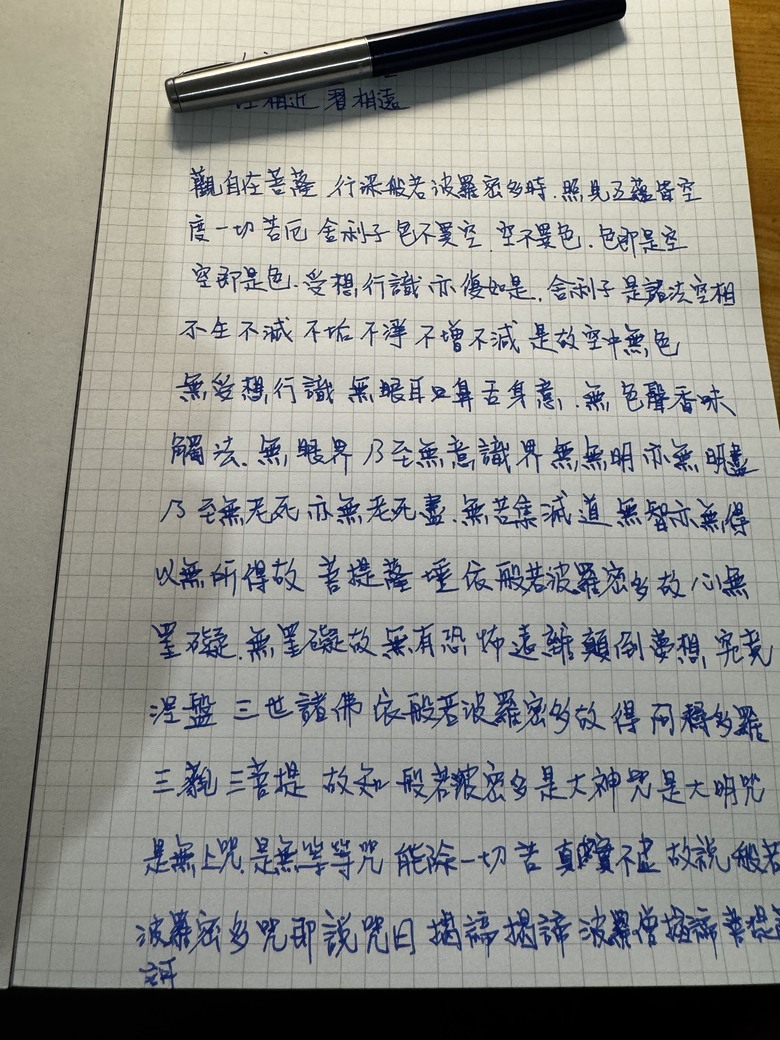 性相近 習相遠
觀自在菩薩 行深般若波羅密多時.照見五蘊皆空
度一切苦厄 舍利子 色不異空.空不異色.色即是空
空即是色.受想行識 亦復如是.舍利子 是諸法空相
不生不滅 不垢不淨 不增不減 是故空中無色
無受想行識 無眼耳口鼻舌身意.無色聲香味
觸法.無眼界 乃至無意識界 無無明亦無明盡
乃至無老死 亦無老死盡.無苦集滅道 無智亦無得
以無所得故 菩提薩埵 依般若波羅密多故 心無
罣礙.無罣礙故 無有恐怖 遠離顛倒夢想 究竟
涅盤 三世諸佛 依般若波羅密多故 得 阿耨多羅
三藐三菩提 故知 般若波密多是大神咒是大明咒
是無上咒.是無等等咒 能除一切苦 真實不虛 故說般若
波羅密多咒即說咒曰 揭諦揭諦 波羅僧揭諦 菩提薩
訶